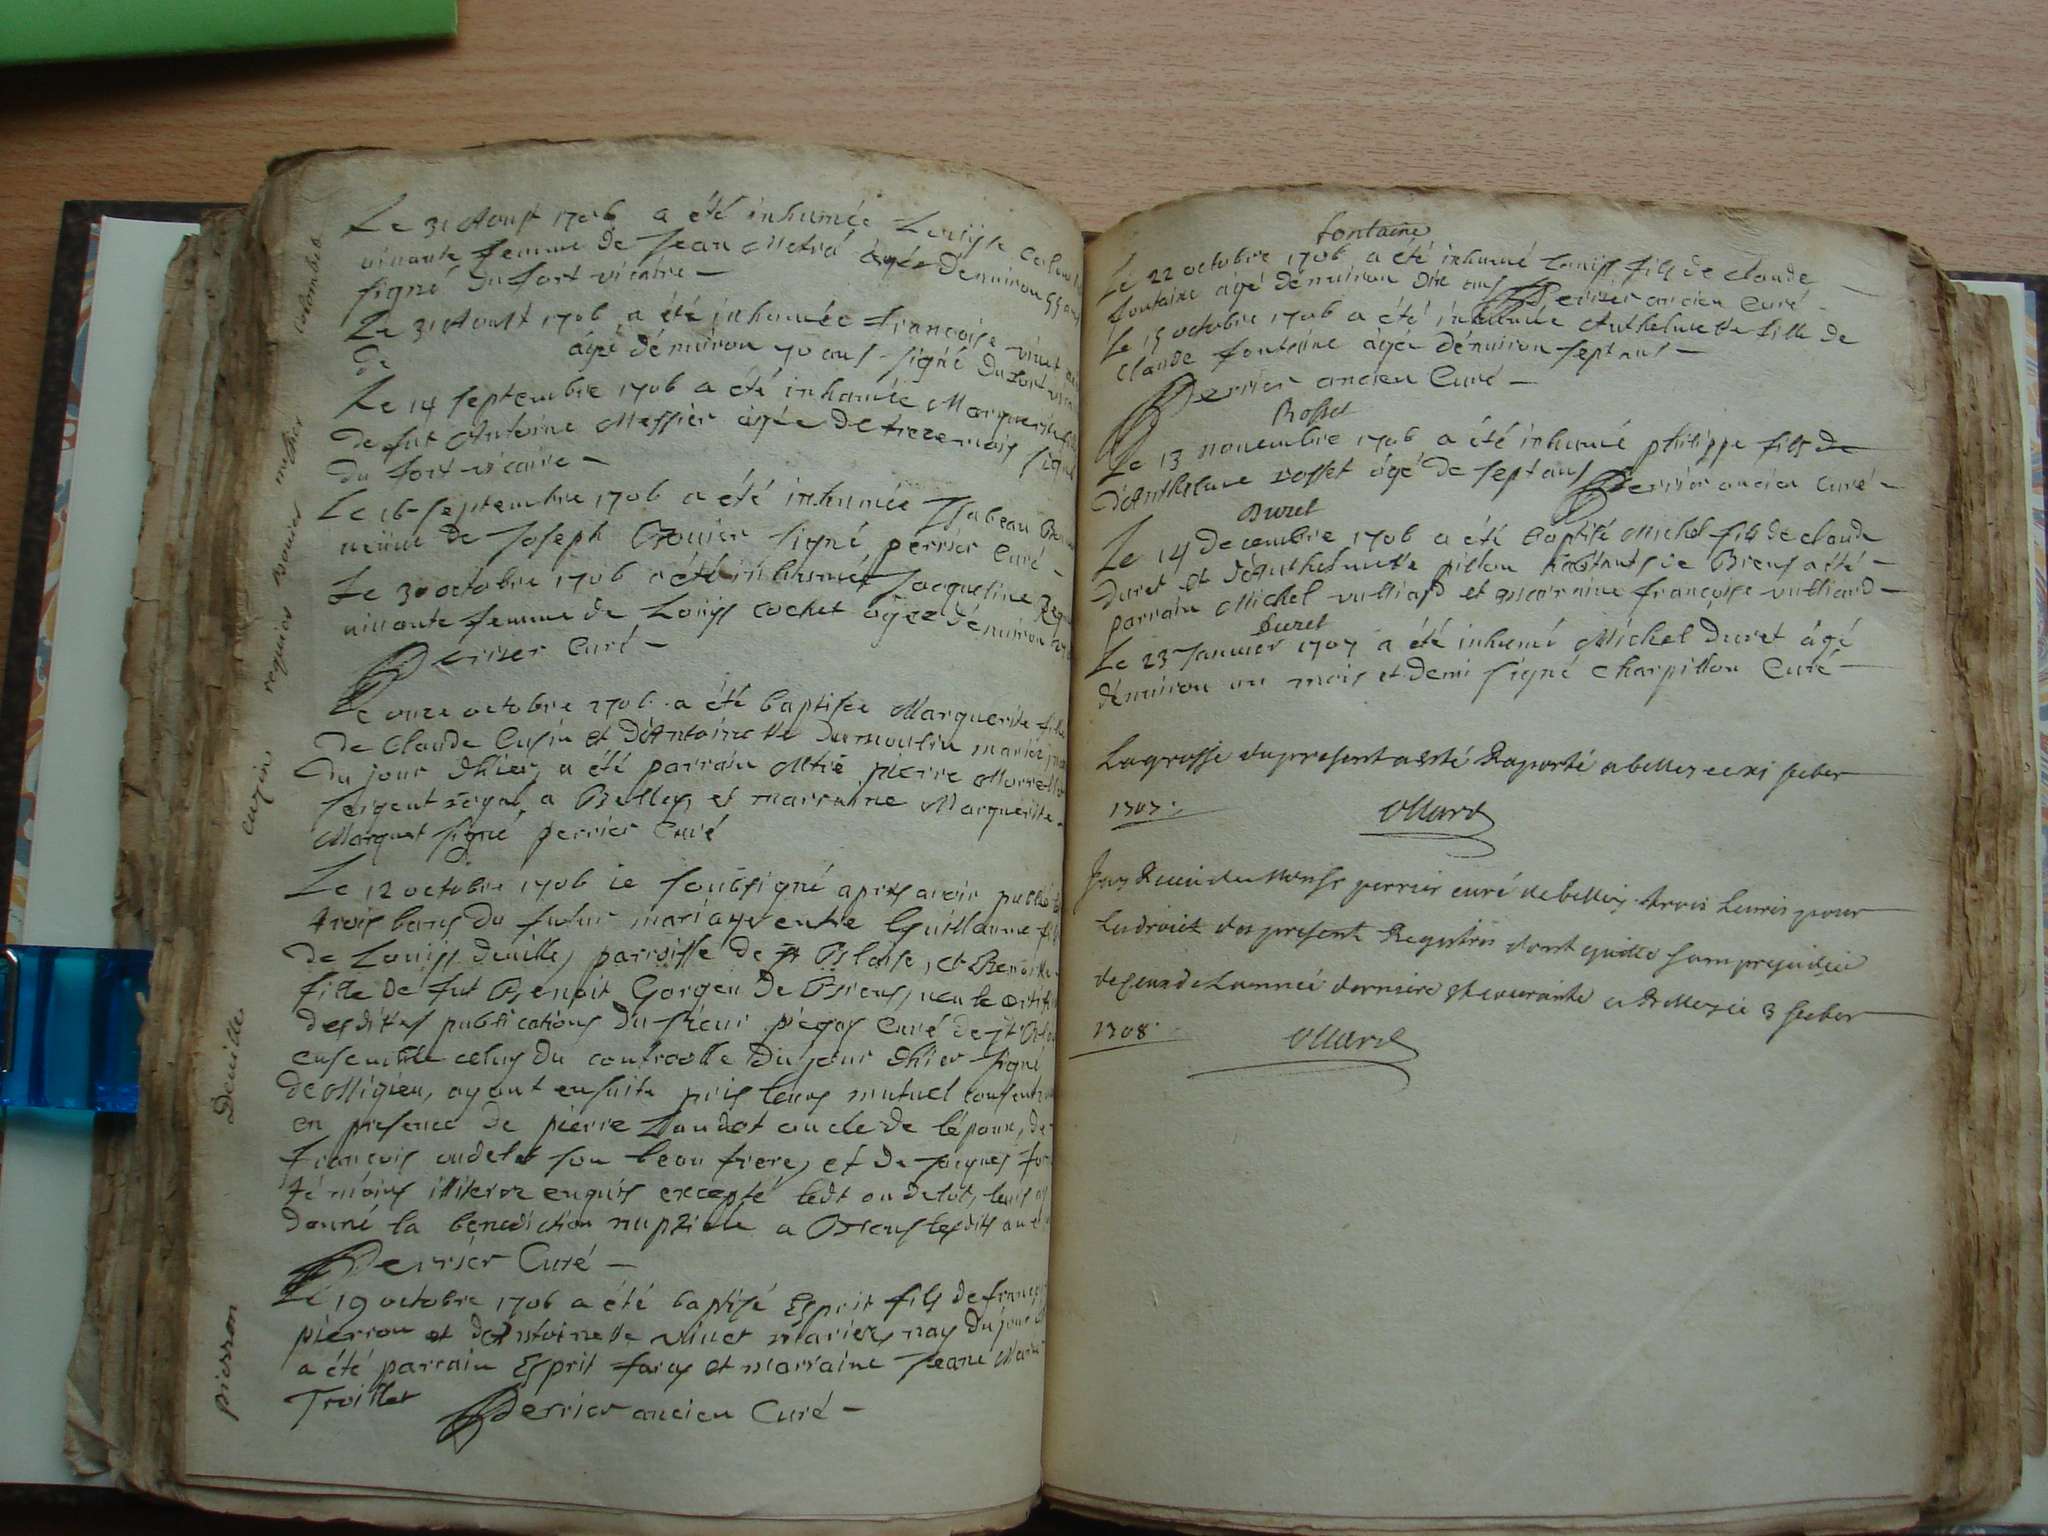 Colombet
Le 31 Aoust 1706 a été inhumée Louijse Colombet
vivante femme de Jean Metrá àgée d'environ 55 ans
signé Dufort vicaire –
Le 31 Aoust 1706 a été inhumée françoise vinet
de àgée d'environ 70 ans signé Dufort
messier
Le 14 septembre 1706 a été inhumée Marguerite fille
de fut Antoine Messier agée de treze mois signé
du fort vicaire –
bovier
Le 16 septembre 1706 a été inhumée Isabeau
veüve de Joseph Bovier signé, perrier Curé –
requier
Le 30 octobre 1706 a été inhumée Jacqueline
vivante femme de Loüijs cochet agée d'environ
Perrier Curé –
cuzin
Le onze octobre 1706 a été baptisée Marguerite fille
de Claude Cusin et d'Antoinette dumoulin mariez
du jour d'hier, a été parrain Mtre pierre
sergent royal a Belley, et marraine Marguerite
Marquet signé perrier Curé
Deville
Le 12 octobre 1706 ie soubsigné apres avoir publié
trois bans du futur mariage entre Guillaume
de Louijs deville, parroisse de st Blaise, et Benoite
fille de fut Benoit Gorgeu de Brens, veu le
desdites publications du sieur pegas Curé de st
ensemble celuy du controolle du jour d'hier signé
de Migieu, ayant ensuite pris leurs mutuel
en presence de pierre Laudet oncle de l'époux, de
François oudelet son beau frere, et de Jacques
témoins illiterez enquis excepté ledt oudelot, leur ay
donné la benediction nuptiale a Brens lesdits an et
Perrier Curé –
pierron
Le 19 octobre 1706 a été baptisé Esprit fils de françois
pierron et d'Antoinette vinet mariez nay du jour
a été parrain Esprit faras et marraine Jeane
Troillet Perrier ancien Curé –
fontaine
Le 22 octobre 1706 a été inhumé Louijs fils de claude
fontaine agé d'environ dix ans Perrier ancien Curé –
Le 15 octobre 1706 a été inhumée Anthelmette fille de
Claude fontaine àgée d'environ sept ans –
Perrier ancien Curé –
Rosset
Le 13 novembre 1706 a été inhumé philippe fils de
d'Anthelme rosset àgé de sept ans Perrier ancien Curé –
Duret
Le 14 decembre 1706 a été baptisé Michel fils de claude
duret et d'Anthelmette pillou habitants de Brens a été –
parrain Michel vulliard et marraine françoise vulliard –
Duret
Le 23 Janvier 1707 a été inhumé Michel duret àgé
d'environ un mois et demi signé Charpillon Curé –
La grosse du present a esté Raporté a belley ce xi feber
1707
Ollard
Jay Receu de Monsr perrier curé de belley trois Livres pour
Les droict des present Registres dont quitte sans prejudice
de ceux de Lannée derniere et courante a Belley ce 3 feber
1708
Ollard